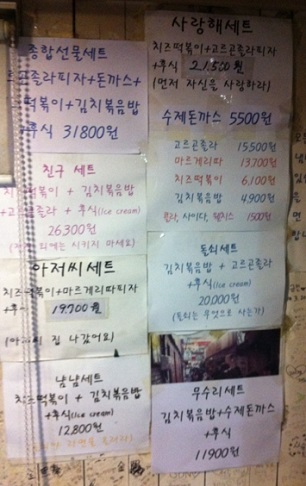 종합선물세트
고르곤졸라피자+돈까스+
떡볶이+김치볶음밥
+후식 31800원
친구 세트
치즈떡볶이 + 김치볶음밥
+고르곤졸라 + 후식(Ice cream)
26300원
외에는 시키지 마세요)
아저씨세트
치즈떡볶이+마르게리따피자
+후식 19,700원
집 나갔어요)
냠냠세트
치즈떡볶이 + 김치볶음밥
+후식(Ice cream)
12,800원
사랑해세트
치즈떡볶이+고르곤졸라피자
+후식 21,500원
(먼저 자신을 사랑하라)
수제돈까스 5500원
고르곤졸라 15,500원
마르게리따 13,700원
치즈떡볶이 6,100원
김치볶음밥 4,900원
콜라, 사이다, 웰치스 1500원
돌쇠세트
김치볶음밥 + 고르곤졸라
+후식(Ice cream)
20,000원
(돌쇠는 무엇으로 사는가)
무수리세트
김치볶음밥+수제돈까스
+후식
11900원